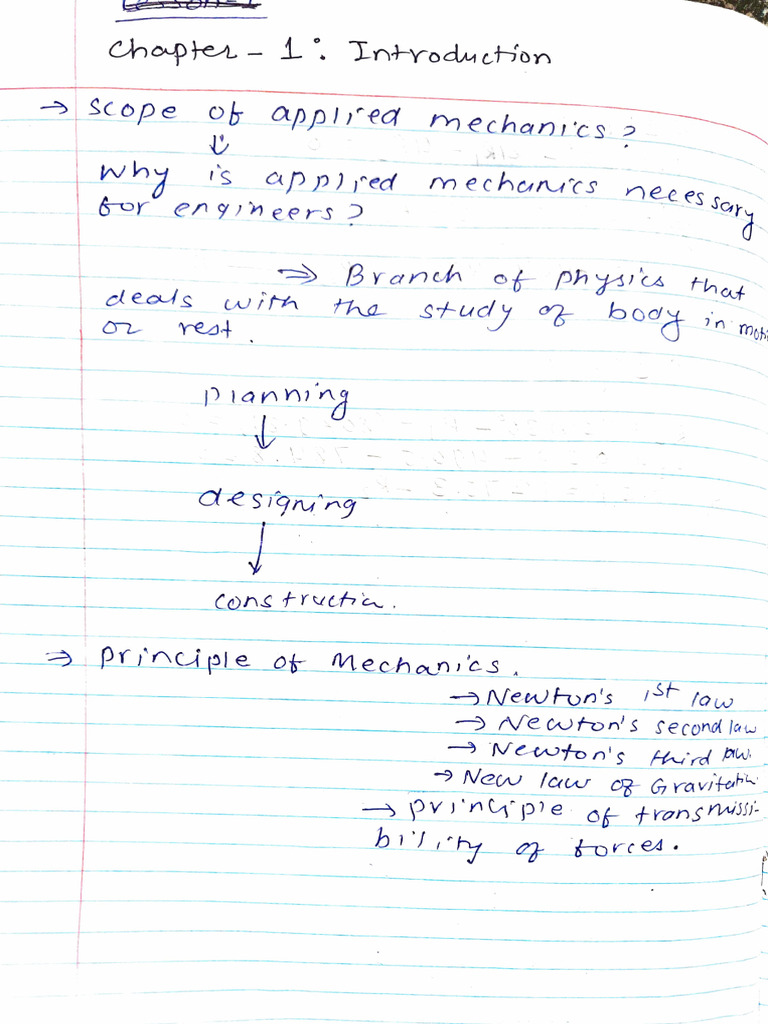 Lesson-1
Chapter - 1: Introduction
→ scope of applied mechanics?
⇓
why is applied mechanics necessary
for engineers?
⇒ Branch of physics that
deals with the study of body in moti
or rest.
planning
↓
designing
↓
constructio.
⇒ principle of Mechanics.
→ Newton's 1st law
→ Newton's second law
→ Newton's third law.
→ New law of Gravitation
→ principle of transmissi-
bility of forces.